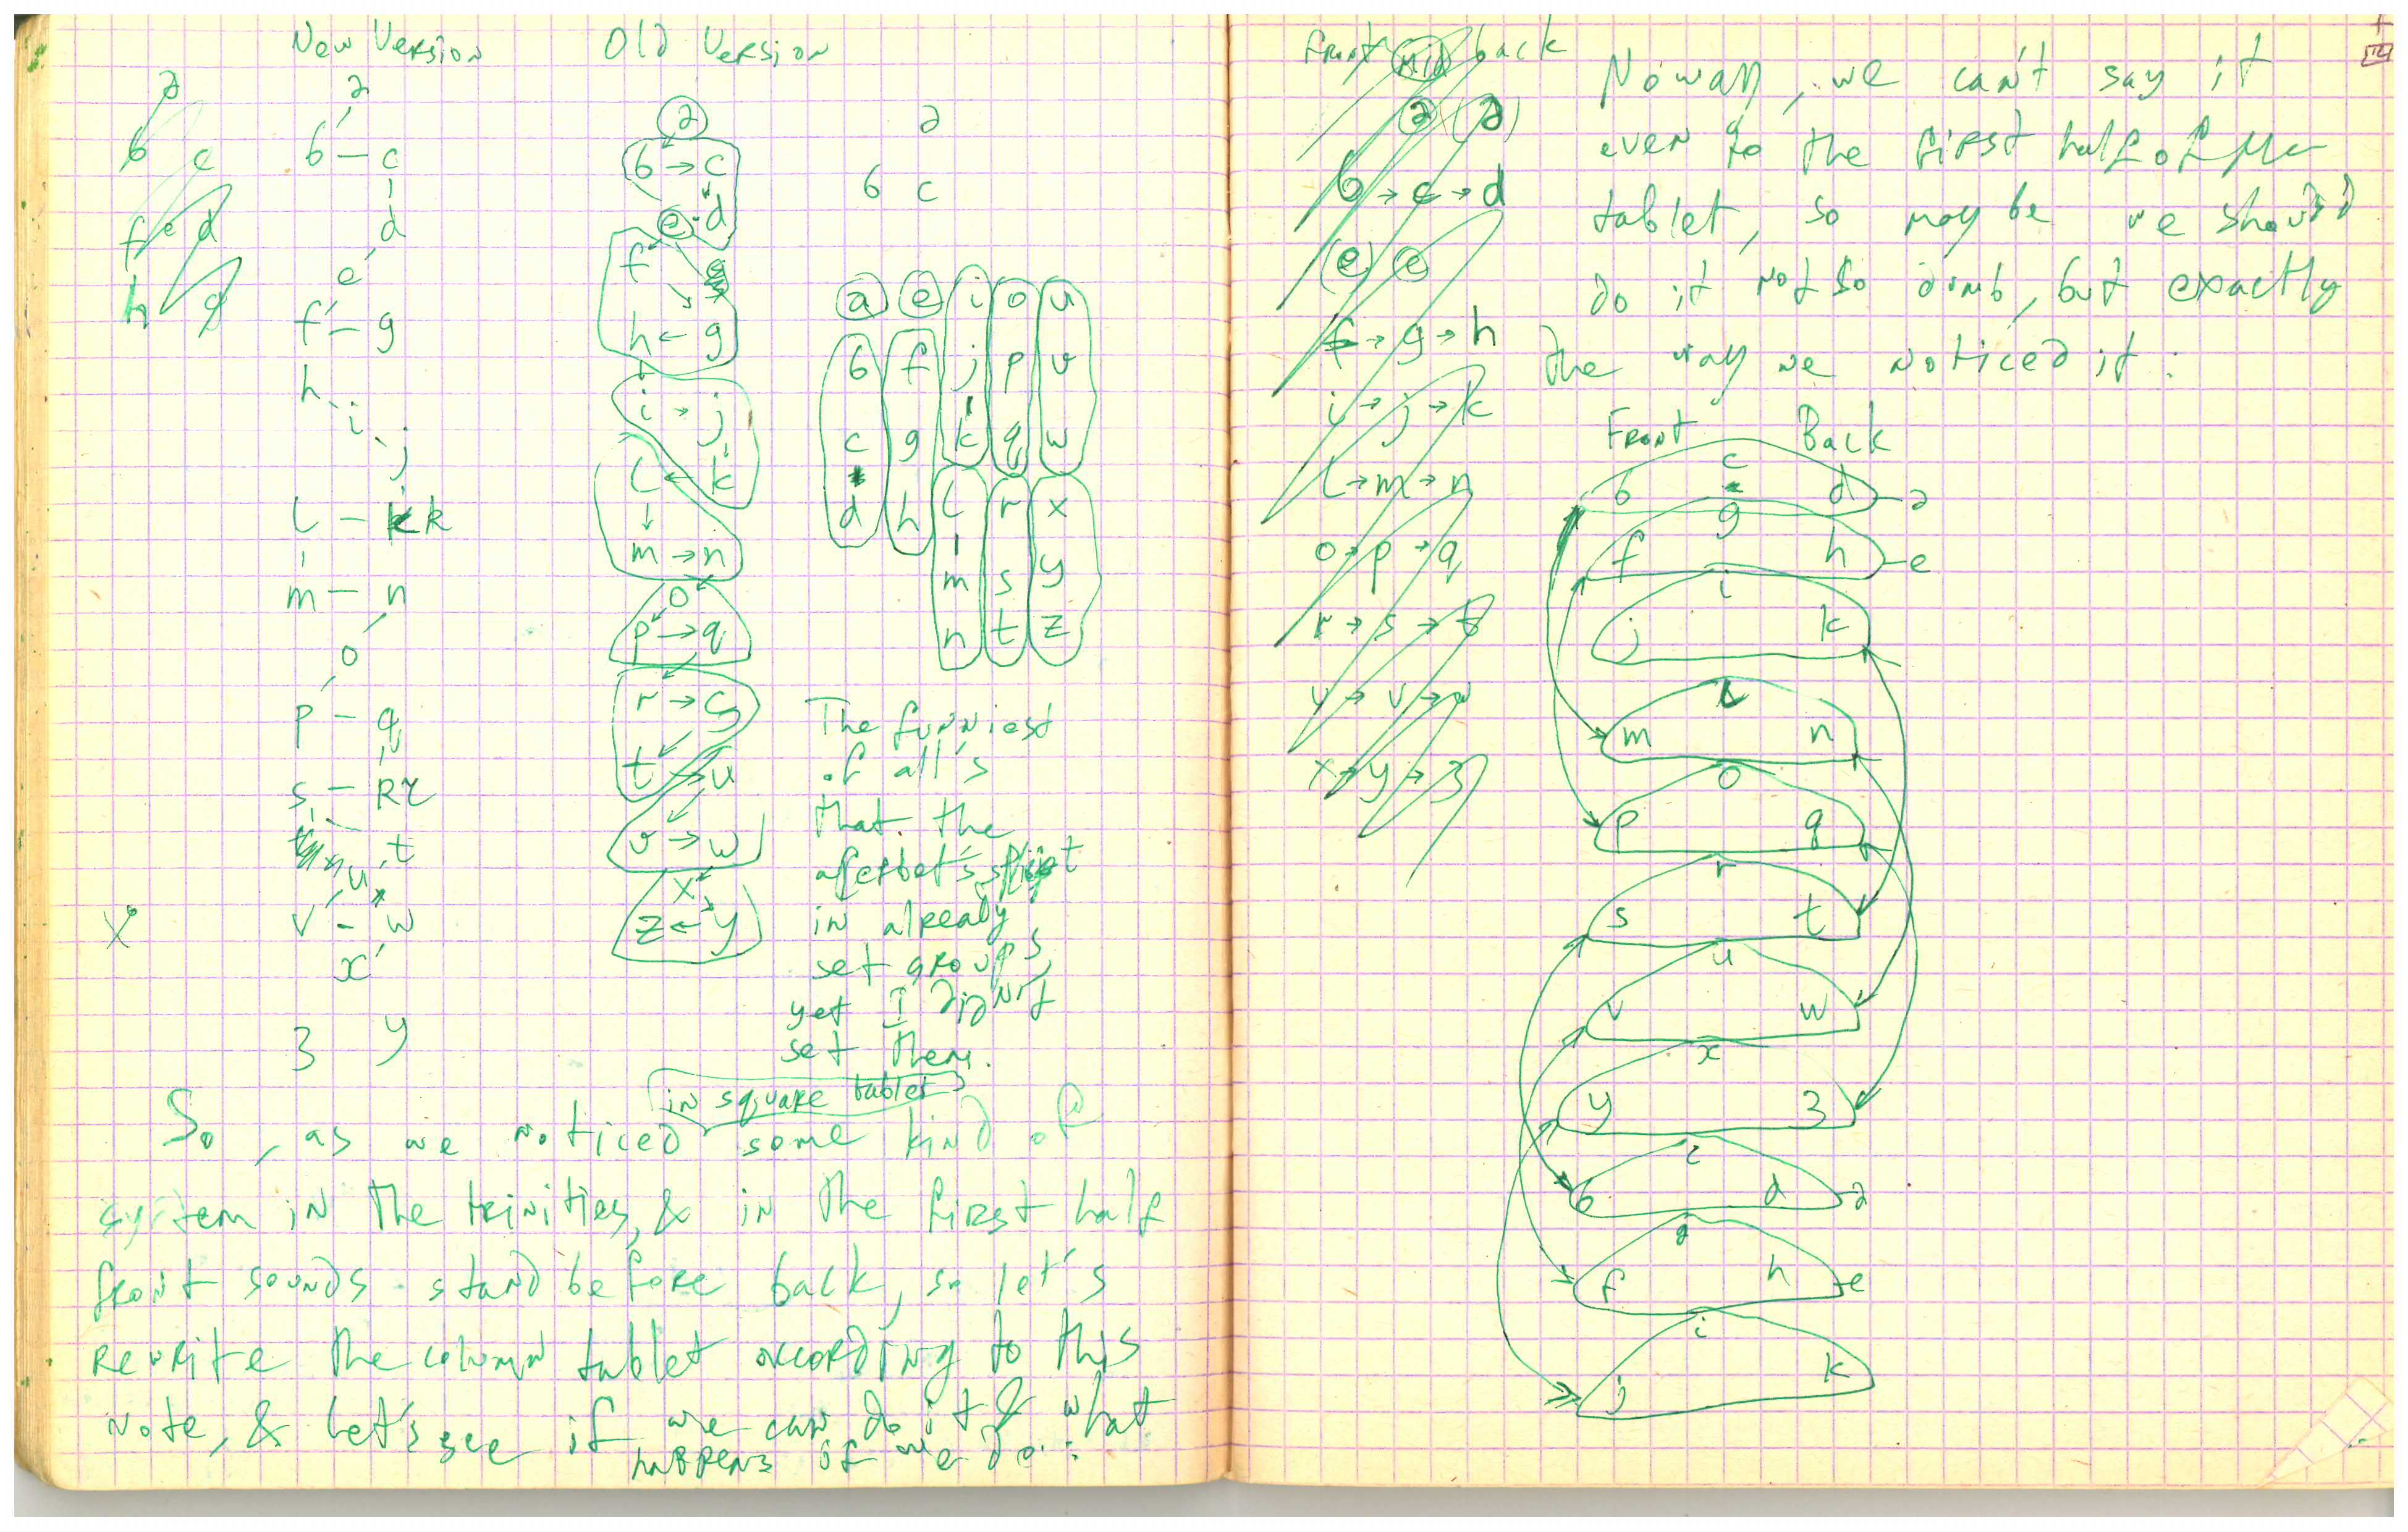 New Version
a
b c
f e d
h g
a
b – c
d
e
f – g
h
i
j
l – k k
m – n
o
p – q
s – R r
t
u
v – w
x
X
3 y
Old Version
a
b → c
e d
f g
h ← g
i → j
l ← k
m → n
o
p → q
r → s
t → u
v → w
x
z ← y
a
b c
a e i o u
b f j p v
c g k q w
d h l r x
m s y
n t z
The funniest
of all's
that the
alferbet's split
in already
set groups,
yet I didn't
set them.
in square tablet
So, as we noticed some kind of
system in the trinities, & in the first half
front sounds stand before back, so let's
rewrite the column tablet according to this
note, & let's see if we can do it & what
happens if we do:
front mid back
a (a)
b → c → d
(e) e
f → g → h
i → j → k
l → m → n
o → p → q
r → s → t
u → v → w
x → y → 3
No way, we can't say it
even to the first half of the
tablet, so maybe we should
do it not so dumb, but exactly
the way we noticed it:
Front Back
c
b d a
g
f h e
i
j k
l
m n
o
p q
r
s t
u
v w
x
y 3
c
b d a
g
f h e
i
j k